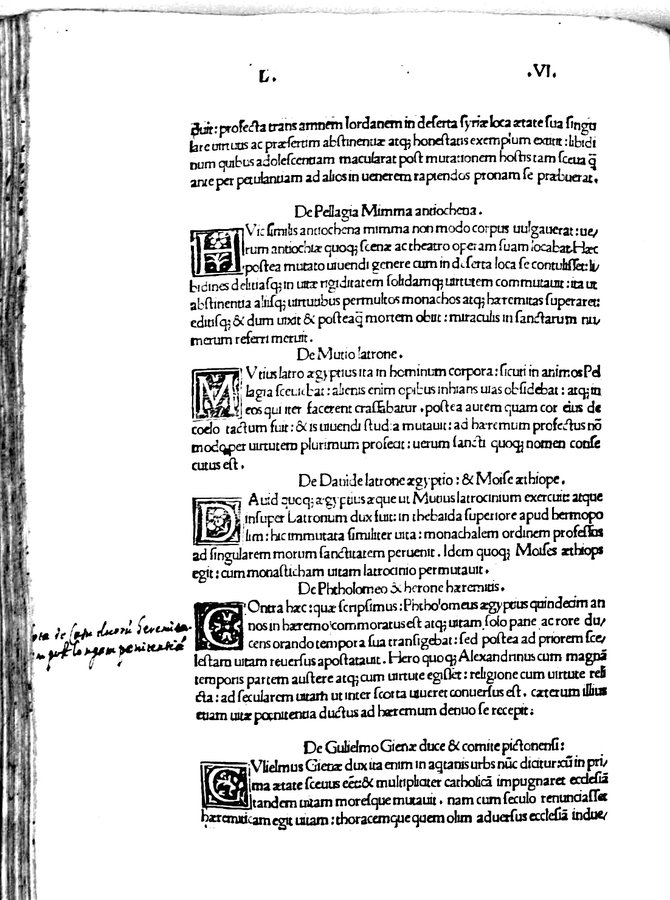 L. .VI.
fuit: profecta trans amnem Iordanem in deserta syriæ loca ætate sua singu
lare uirtutis ac præsertim abstinentiæ atq; honestatis exemplum extitit: libidi
num quibus adolescentiam macularat post mutationem hostis tam sæua q̄
ante per petulantiam ad alios in uenerem rapiendos pronam se præbuerat.
De Pellagia Mimma antiochena.
HVic similis antiochena mimma non modo corpus uulgauerat: ue/
rum antiochiæ quoq; scenæ ac theatro operam suam locabat. Hæc
postea mutato uiuendi genere cum in deserta loca se contulisset: li/
bidines delitiasq; in uitæ rigiditatem solidamq; uirtutem commutauit: ita ut
abstinentia aliisq; uirtutibus permultos monachos atq; hæremitas superaret:
editisq; & dum uixit & posteaq̄ mortem obiit: miraculis in sanctarum nu/
merum referri meruit.
De Mutio latrone.
MVtius latro ægyptius ita in hominum corpora: sicuti in animos Pel
lagia sæuiebat: alienis enim opibus inhians uias obsidebat: atq; in
eos qui iter facerent crassabatur. postea autem quam cor eius de
coelo tactum fuit: & is uiuendi studia mutauit: ad hæremum profectus nō
modo per uirtutem plurimum profecit: uerum sancti quoq; nomen conse
cutus est.
De Dauide latrone ægyptio: & Moise æthiope.
DAuid quoq; ægyptius æque ut Mutius latrocinium exercuit: atque
insuper Latronum dux fuit: in thebaida superiore apud hermopo
lim: hic immutata similiter uita: monachalem ordinem professus
ad singularem morum sanctitatem peruenit. Idem quoq; Moises æthiops
egit: cum monasticham uitam latrocinio permutauit.
De Phtholomeo & herone hæremitis.
COntra hæc: quæ scripsimus: Phtholomeus ægyptius quindecim an
nos in hæremo commoratus est atq; uitam solo pane ac rore du/
cens orando tempora sua transigebat: sed postea ad priorem sce/
lestam uitam reuersus apostatauit. Hero quoq; Alexandrinus cum magnā
temporis partem austere atq; cum uirtute egisset: religione cum uirtute reli
cta: ad secularem uitam ut inter scorta uiueret conuersus est. cæterum illius
etiam uitæ poenitentia ductus ad hæremum denuo se recepit:
post longam penitentiā
De Gulielmo Gienæ duce & comite pictonensi:
GVlielmus Gienæ dux ita enim in aqtanis urbs nūc dicitur: cū in pri/
ma ætate sæuus eēt: & multipliciter catholicā impugnaret ecclesiā
tandem uitam moresque mutauit. nam cum seculo renunciasset
hæremiticam egit uitam: thoracemque quem olim aduersus ecclesiā indue/